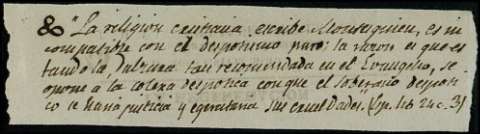 "La religion cristiana, escribe Montesquieu, es in
compatible con el despotismo puro; la razon es que es
tando la dulzura tan recomendada en el Evangelio, se
opone a la colera despotica con que el soberano despoti
co se haria justicia y egercitaria sus crueldades. (Esp. lib 24 c. 3)